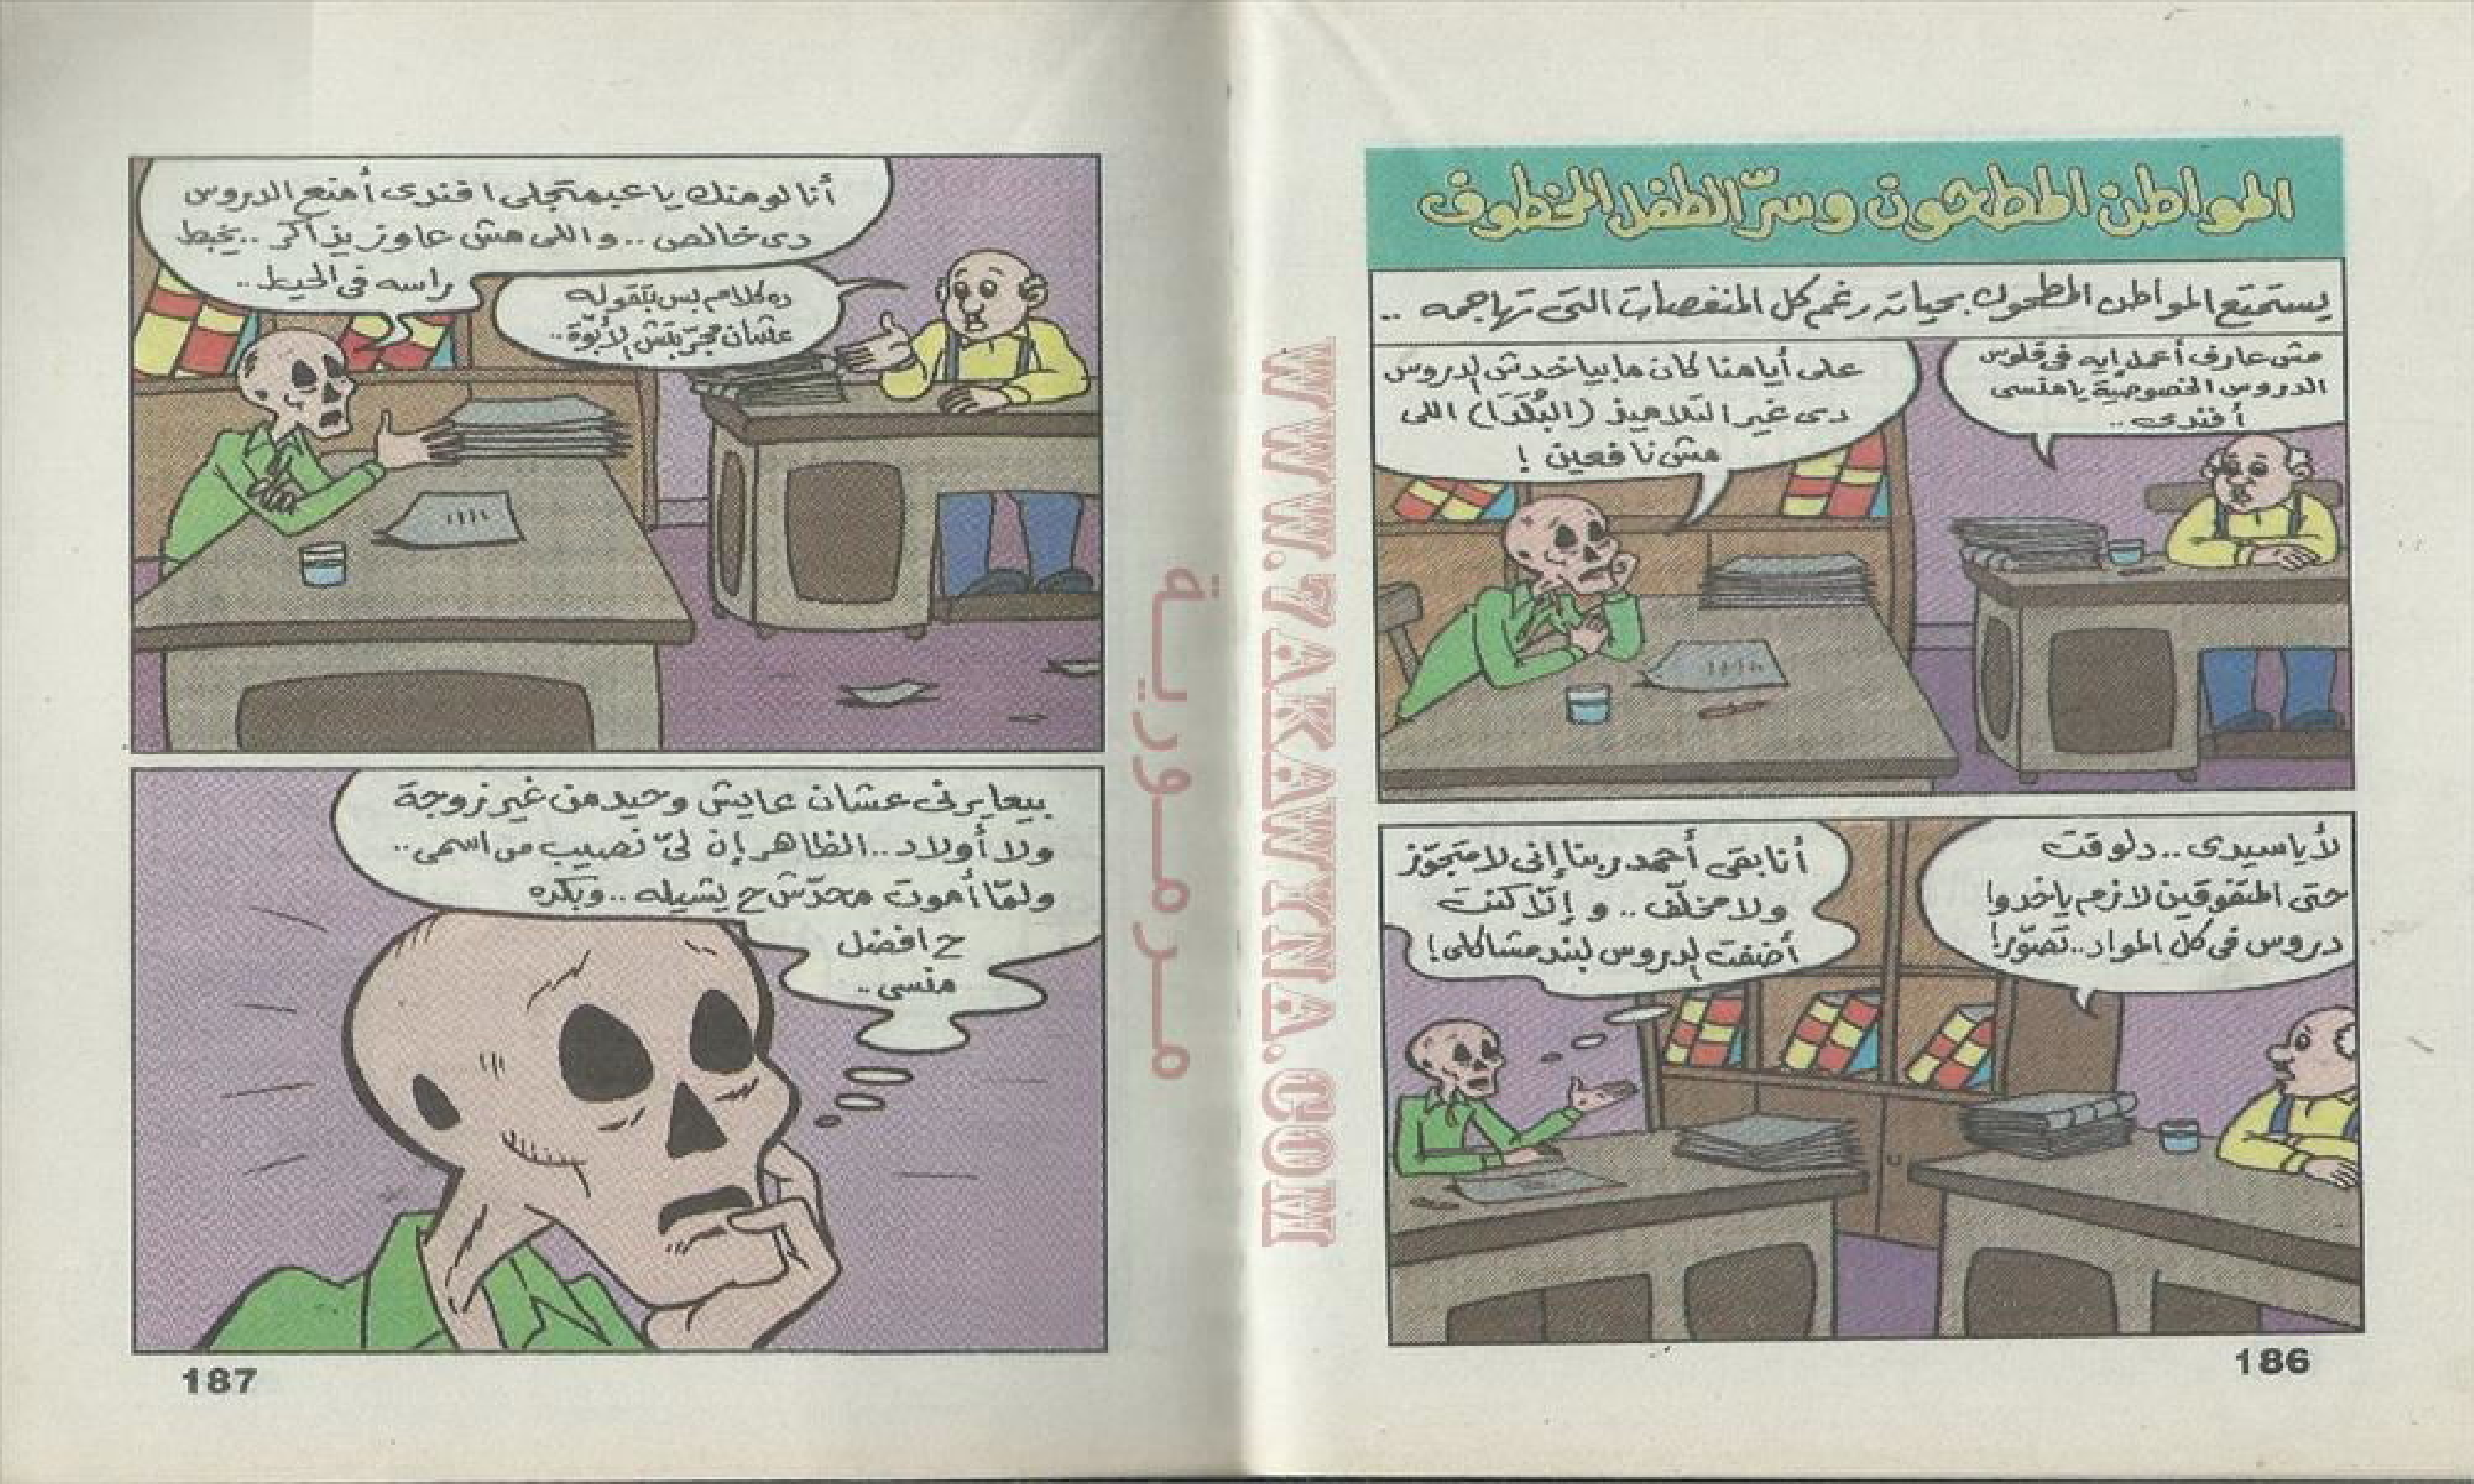 المواطن المطحون وسرّ الطفل المخطوف
يستمتع المواطن المطحون بحياته رغم كل المنغصات التى تهاجمه ..
مش عارف أعمل إيه فى فلوس
الدروس الخصوصية يا منسى
أفندى ..
على أيامنا كان ما بياخدش الدروس
دى غير التلاميذ (البُلَدَا) اللى
مش نافعين !
لأ يا سيدى .. دلوقت
حتى المتفوقين لازم ياخدوا
دروس فى كل المواد .. تصوّر!
أنا بقى أحمد ربنا إنى لا متجوّز
ولا مخلّف .. و إلّا كنت
أضفت الدروس لبند مشاكلى!
186
أنا لو منك يا عبمتجلى افندى أمنع الدروس
دى خالص .. و اللى مش عاوز يذاكر .. يخبط
راسه فى الحيط ..
ده كلام بس بتقوله
عشان مجرّبتش الأبوّة ..
بيعايرنى عشان عايش وحيد من غير زوجة
ولا أولاد .. الظاهر إن لىّ نصيب من اسمى ..
ولمّا أموت محدّش ح يشيله .. وبكره
ح افضل
منسى ..
187
مرمورية
WWW.7AKAWYNA.COM